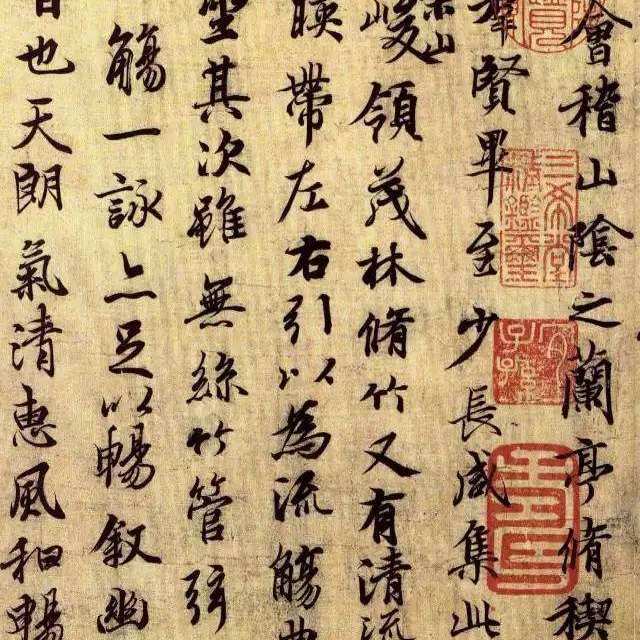 會稽山陰之蘭亭脩稧
群賢畢至少長咸集此
崇山
峻領茂林脩竹又有清流
暎帶左右引以為流觴曲
坐其次雖無絲竹管弦
觴一詠亦足以暢叙幽
日也天朗氣清惠風和暢
三希堂精鑒璽
宜子孫